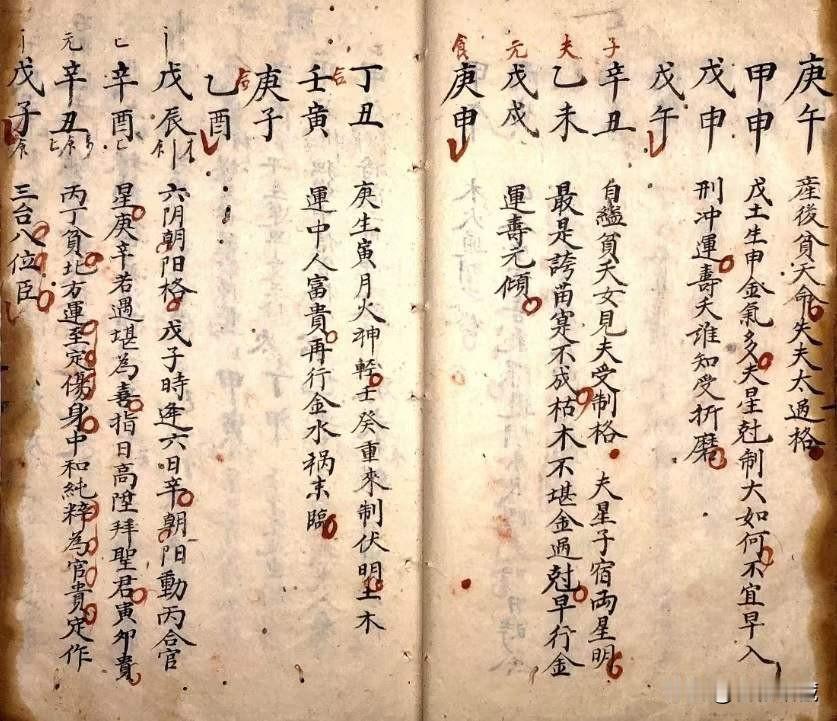 庚午
產後貧夭命失夫太過格
甲申
戊土生申金氣多夫星尅制大如何不宜早入
戊申
刑冲運壽夭誰知受折磨
戊午
子
辛丑
自縊貧夭女見夫受制格 夫星子宿両星明
夫
乙未
最是誇苗算不成枯木不堪金過尅早行金
元
戊戌
運壽元傾
食
庚申
丁丑
庚生寅月火神輕壬癸重來制伏明土木
合
壬寅
運中人富貴再行金水禍未臨
庚子
合
乙酉
戊辰
六阴朝阳格戊子時逢六日辛朝阳動丙合官
辛酉
星庚辛若遇堪為喜指日高陞拜聖君寅夘貴
元
辛丑
丙丁貧北方運至定傷身中和純粹為官貴定作
戊子
三台八位臣